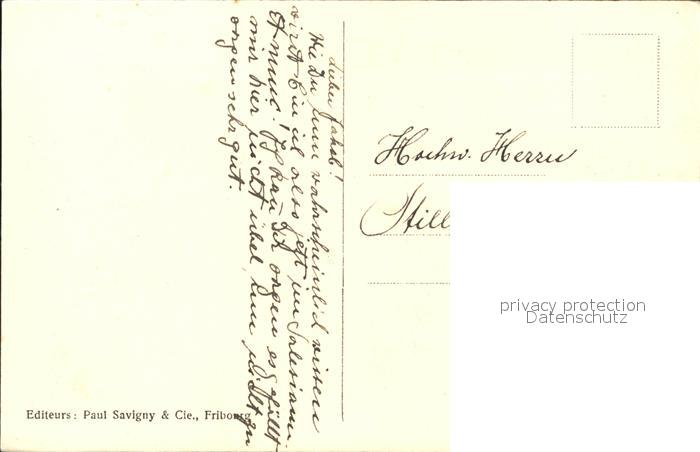 Lieber Jakob!
Wie Du nun wahrscheinlich wissen
wirst bin ich also jetzt im Salesianum.
Ich kan Dir sagen es gefällt
mir hier nicht übel, nun nicht zu
sehr gut.
Hochw. Herrn
Still
privacy protection
Datenschutz
Editeurs: Paul Savigny & Cie., Fribourg